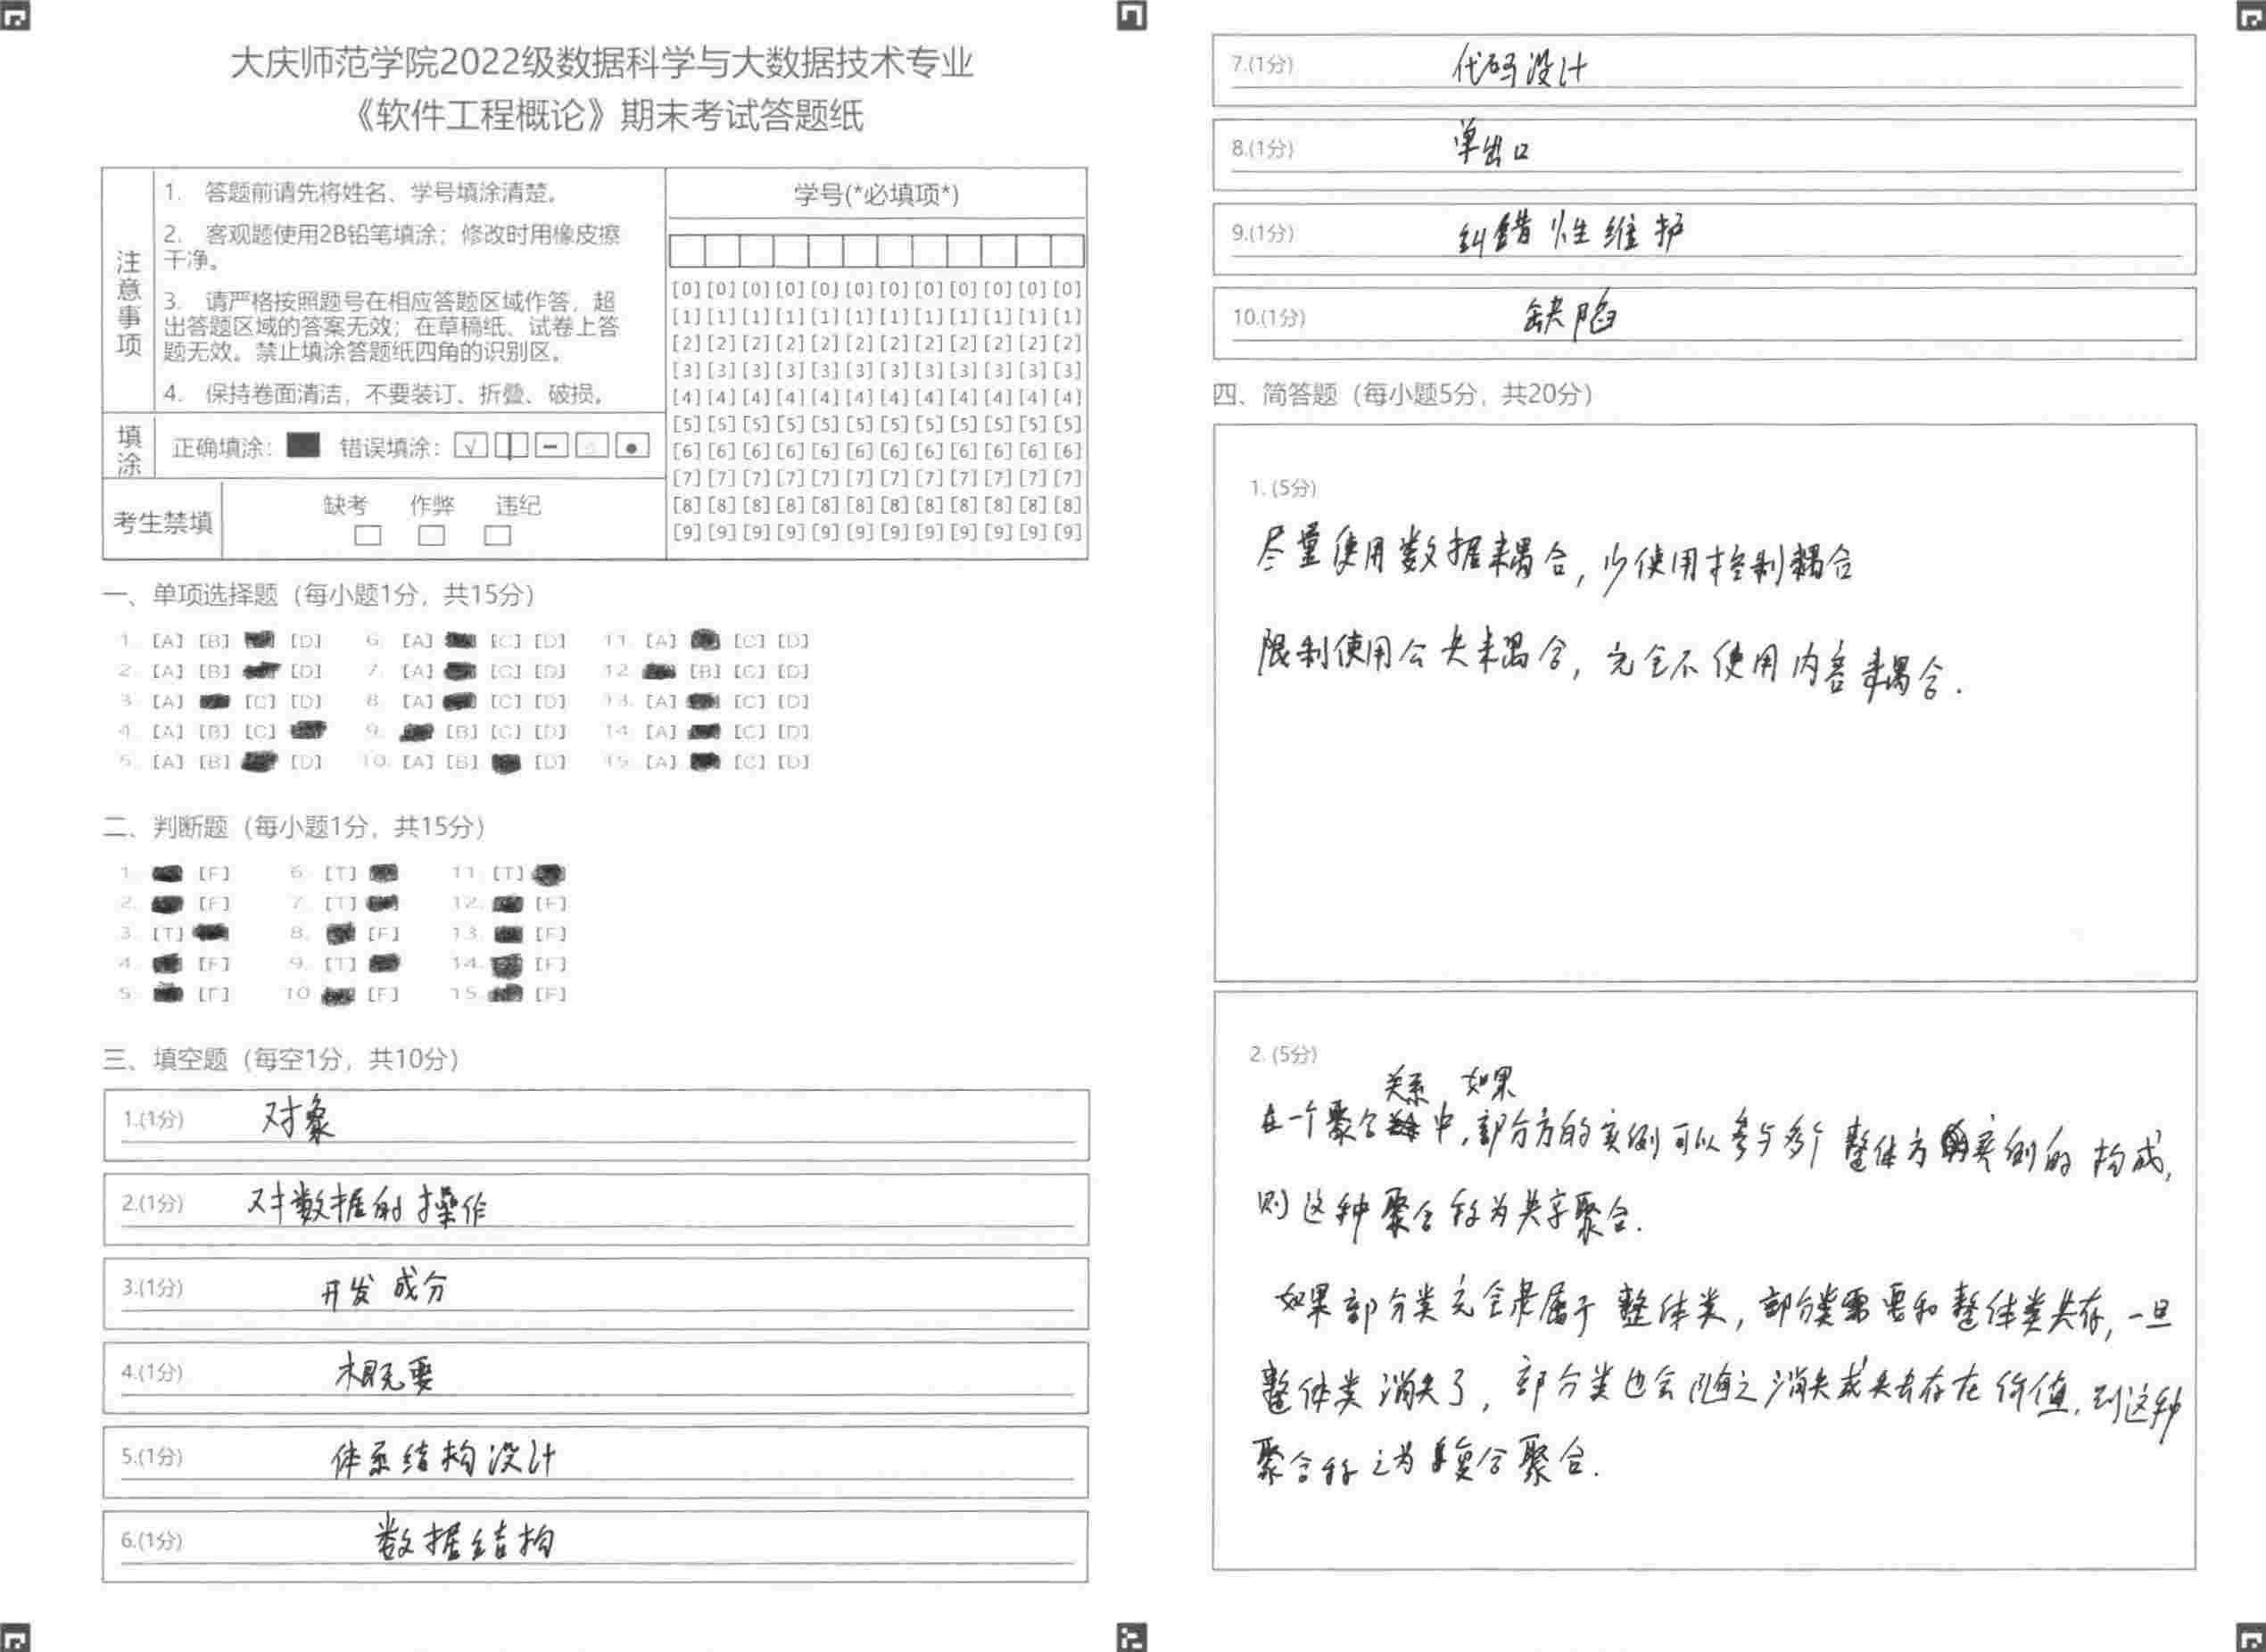 大庆师范学院2022级数据科学与大数据技术专业
《软件工程概论》期末考试答题纸
注意事项
1. 答题前请先将姓名、学号填涂清楚。
2. 客观题使用2B铅笔填涂；修改时用橡皮擦
干净。
3. 请严格按照题号在相应答题区域作答，超
出答题区域的答案无效；在草稿纸、试卷上答
题无效。禁止填涂答题纸四角的识别区。
4. 保持卷面清洁，不要装订、折叠、破损。
填涂 正确填涂： 错误填涂：
考生禁填 缺考 作弊 违纪
学号(*必填项*)
[0] [0] [0] [0] [0] [0] [0] [0] [0] [0] [0] [0]
[1] [1] [1] [1] [1] [1] [1] [1] [1] [1] [1] [1]
[2] [2] [2] [2] [2] [2] [2] [2] [2] [2] [2] [2]
[3] [3] [3] [3] [3] [3] [3] [3] [3] [3] [3] [3]
[4] [4] [4] [4] [4] [4] [4] [4] [4] [4] [4] [4]
[5] [5] [5] [5] [5] [5] [5] [5] [5] [5] [5] [5]
[6] [6] [6] [6] [6] [6] [6] [6] [6] [6] [6] [6]
[7] [7] [7] [7] [7] [7] [7] [7] [7] [7] [7] [7]
[8] [8] [8] [8] [8] [8] [8] [8] [8] [8] [8] [8]
[9] [9] [9] [9] [9] [9] [9] [9] [9] [9] [9] [9]
一、单项选择题（每小题1分，共15分）
1. [A] [B] [D] 6. [A] [C] [D] 11. [A] [C] [D]
2. [A] [B] [D] 7. [A] [C] [D] 12. [B] [C] [D]
3. [A] [C] [D] 8. [A] [C] [D] 13. [A] [C] [D]
4. [A] [B] [C] 9. [B] [C] [D] 14. [A] [C] [D]
5. [A] [B] [D] 10. [A] [B] [D] 15. [A] [C] [D]
二、判断题（每小题1分，共15分）
1. [F] 6. [T] 11. [T]
2. [F] 7. [T] 12. [F]
3. [T] 8. [F] 13. [F]
4. [F] 9. [T] 14. [F]
5. [F] 10. [F] 15. [F]
三、填空题（每空1分，共10分）
1.(1分) 对象
2.(1分) 对数据的操作
3.(1分) 开发成分
4.(1分) 概要
5.(1分) 体系结构设计
6.(1分) 数据结构
7.(1分) 代码设计
8.(1分) 单出口
9.(1分) 纠错性维护
10.(1分) 缺陷
四、简答题（每小题5分，共20分）
1. (5分)
尽量使用数据耦合，少使用控制耦合
限制使用公共耦合，完全不使用内容耦合.
2. (5分)
关系 如果
在一个聚合中，部分方的实例可以参与多个整体方实例的构成，
则这种聚合称为共享聚合.
如果部分类完全隶属于整体类，部分类需要和整体类共存，一旦
整体类消失了，部分类也会随之消失或失去存在价值，则这种
聚合称之为复合聚合.